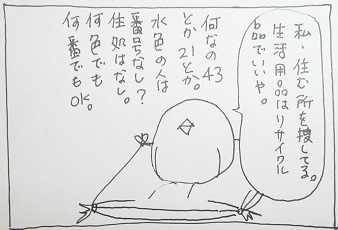 私、住む所を捜してる。
生活用品はリサイクル
品でいいや。
何なの43
とか21とか。
水色の人は
番号なし?
住処はなし。
何色でも
何番でもOK。